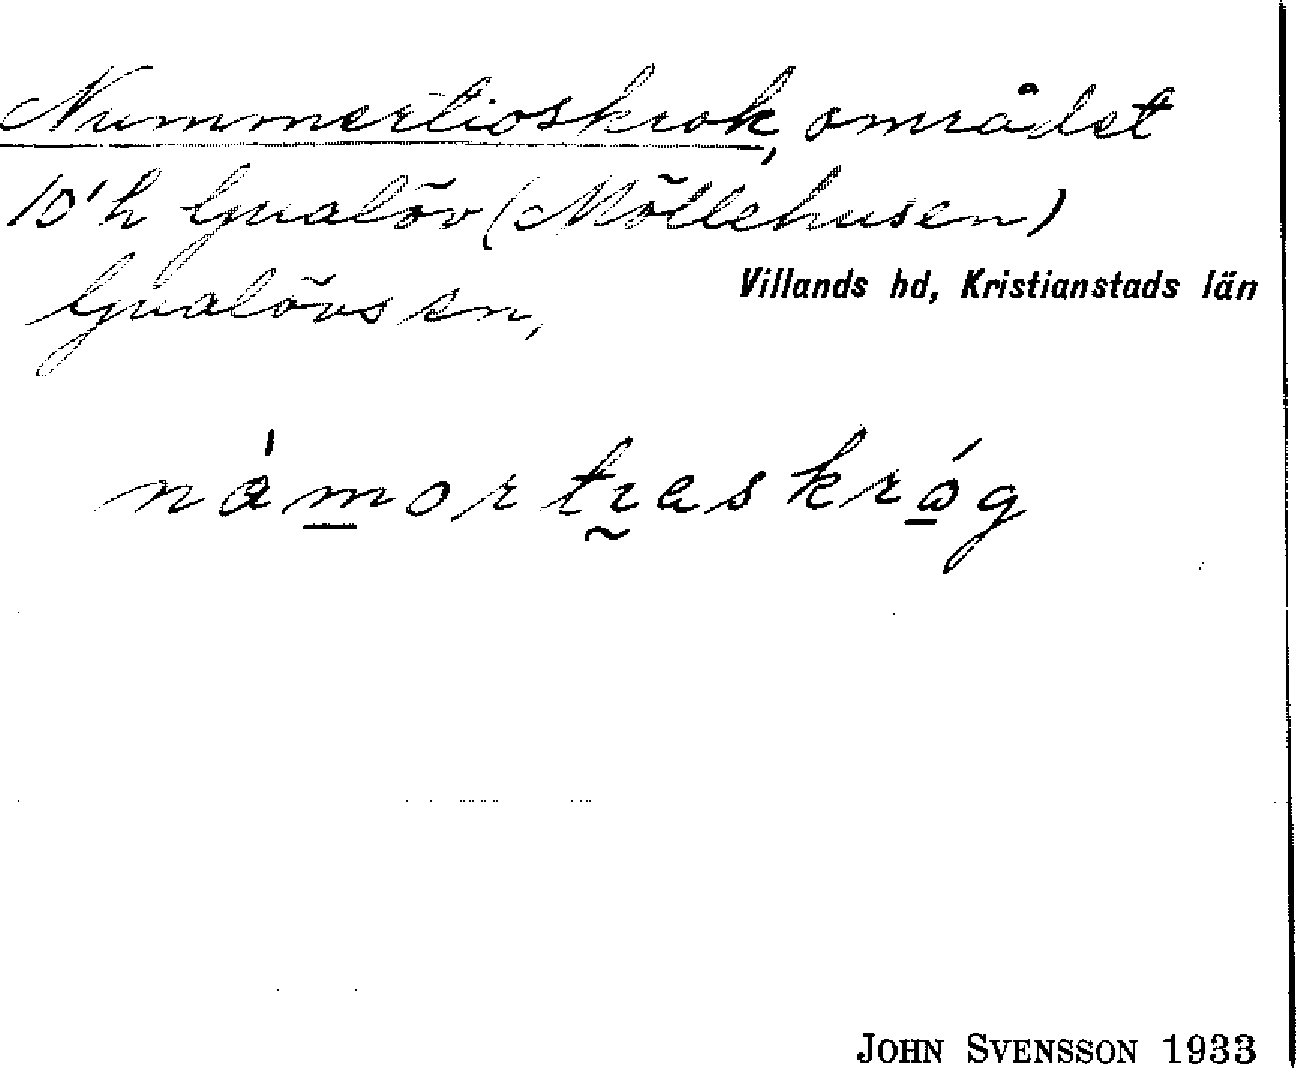 Nummertioskrok, området
10'h Gualöv (Möllehusen)
Gualövs sn,
Villands hd, Kristianstads län
nåmortıaskróg
JOHN SVENSSON 1933